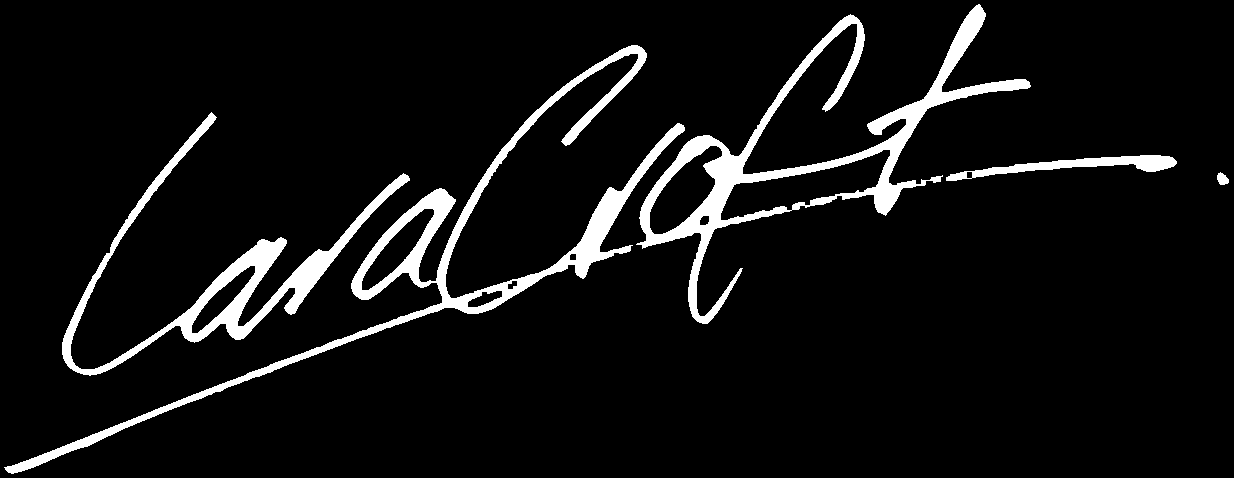 Lara Croft.